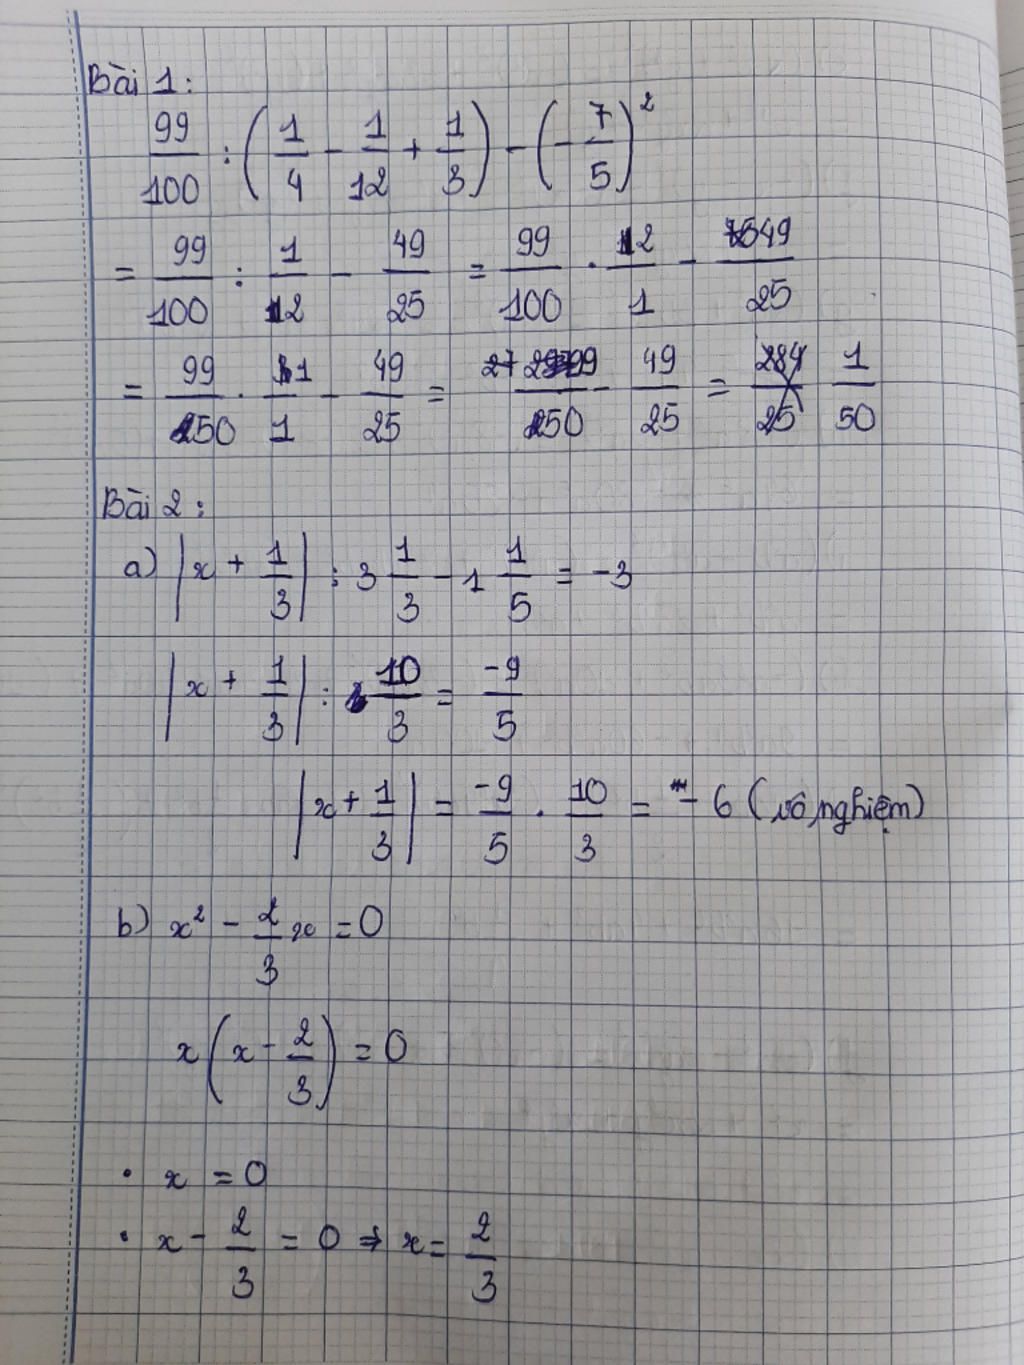 Bài 1:
99/100 : (1/4 - 1/12 + 1/3) - (-7/5)²
= 99/100 : 1/12 - 49/25 = 99/100 . 12/1 - 49/25
= 99/50 . 1/1 - 49/25 = 99/50 - 49/25 = 1/50
Bài 2:
a) |x + 1/3| : 3 1/3 - 1 1/5 = -3
|x + 1/3| : 10/3 = -9/5
|x + 1/3| = -9/5 . 10/3 = -6 (vô nghiệm)
b) x² - 2/3 x = 0
x(x - 2/3) = 0
• x = 0
• x - 2/3 = 0 ⇒ x = 2/3